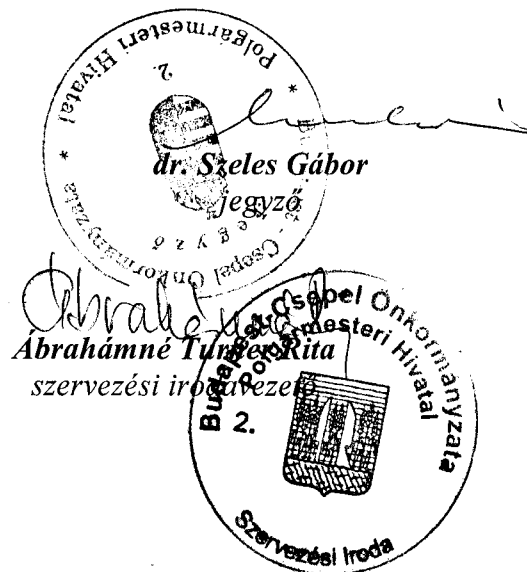 * Polgármesteri Hivatal *
2.
Csepel Önkormányzata
Jegyző
dr. Szeles Gábor
jegyző
Ábrahámné Turner Rita
szervezési irodavezető
Budapest-Csepel Önkormányzata
Polgármesteri Hivatal
2.
Szervezési Iroda